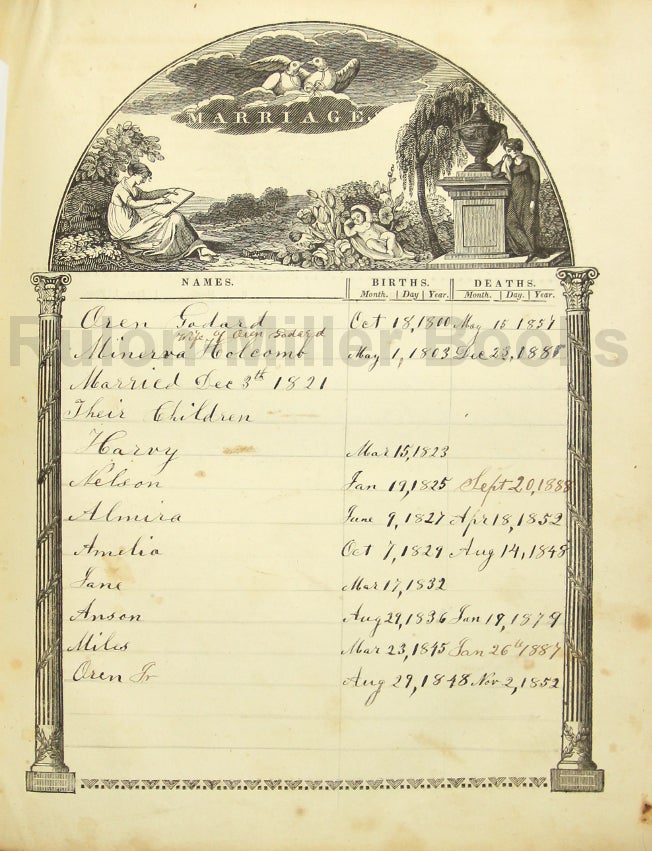 MARRIAGE.
NAMES. BIRTHS. DEATHS.
Month. Day Year. Month. Day. Year.
Oren Godard Oct 18, 1800 May 15 1857
Wife of Oren Godard
Rulon-Miller Books
Minerva Holcomb May 1, 1803 Dec 23,
Married Dec 3th 1821
Their Children
Harvy Mar 15, 1823
Nelson Jan 19, 1825 Sept 20, 1888
Almira June 9, 1827 Apr 18, 1852
Amelia Oct 7, 1829 Aug 14, 1848
Jane Mar 17, 1832
Anson Aug 29, 1836 Jan 19, 1879
Miles Mar 23, 1845 Jan 26th 1887
Oren Jr Aug 29, 1848 Nov 2, 1852